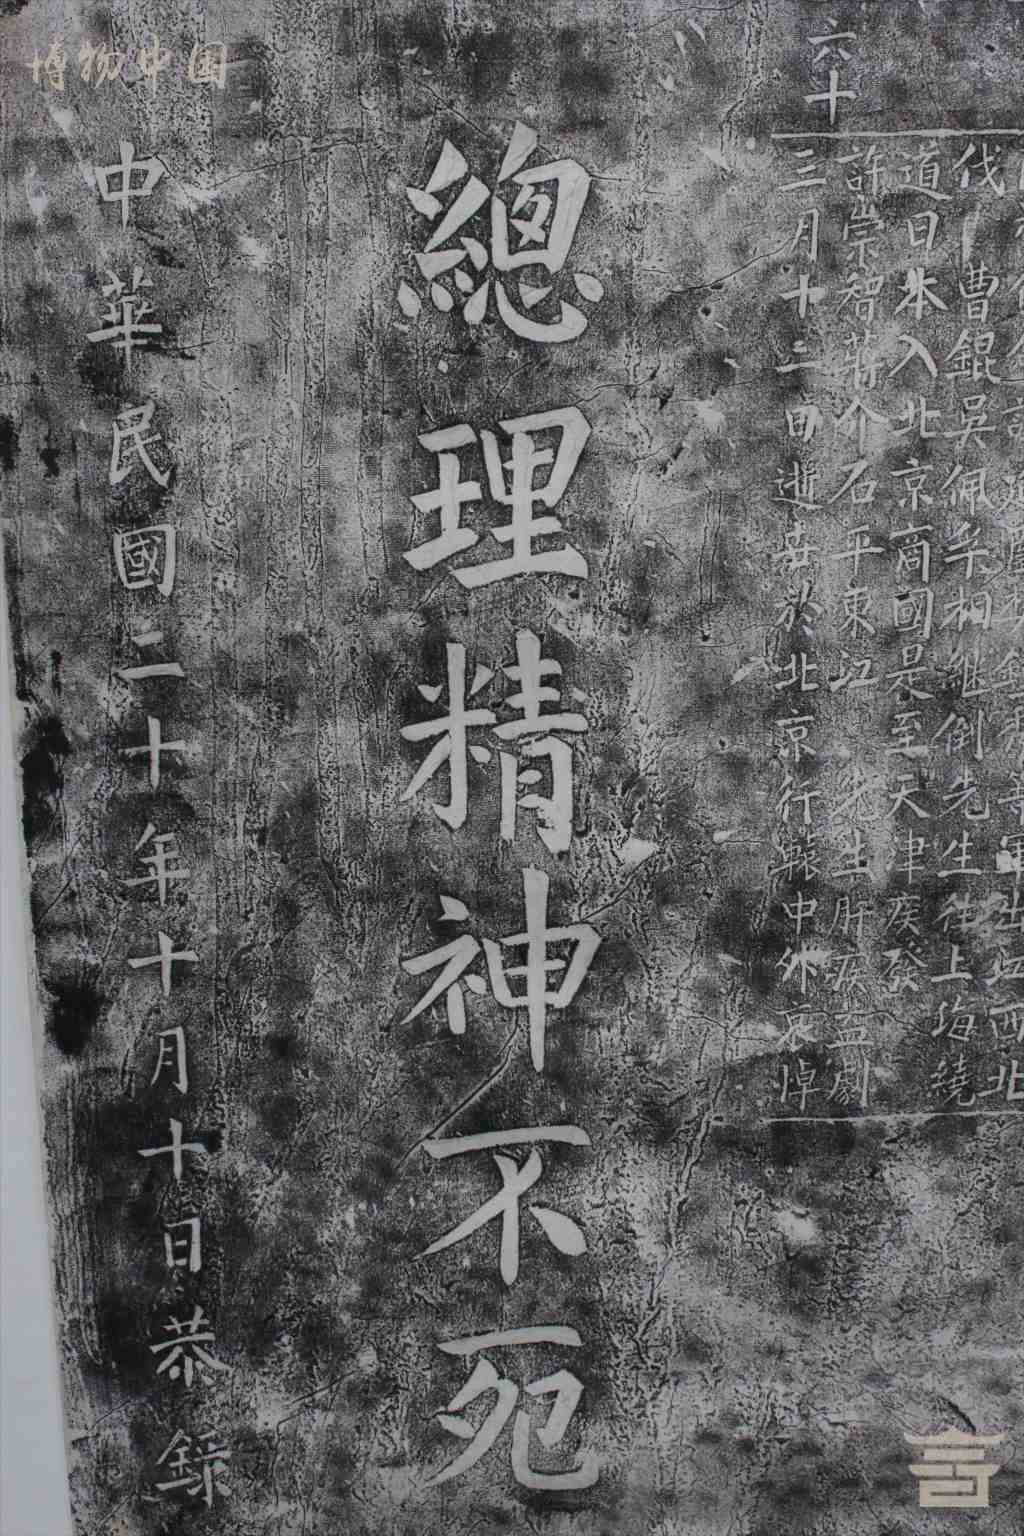 博物中国
軍出江西北
伐 曹錕吳佩孚相継倒先生往上海繞
道日本入北京商國是至天津疾發
六十
許崇智蔣介石平東江 先生肝疾益劇
三月十二日逝世於北京行轅中外哀悼
總理精神不死
中華民國二十年十月十日恭錄